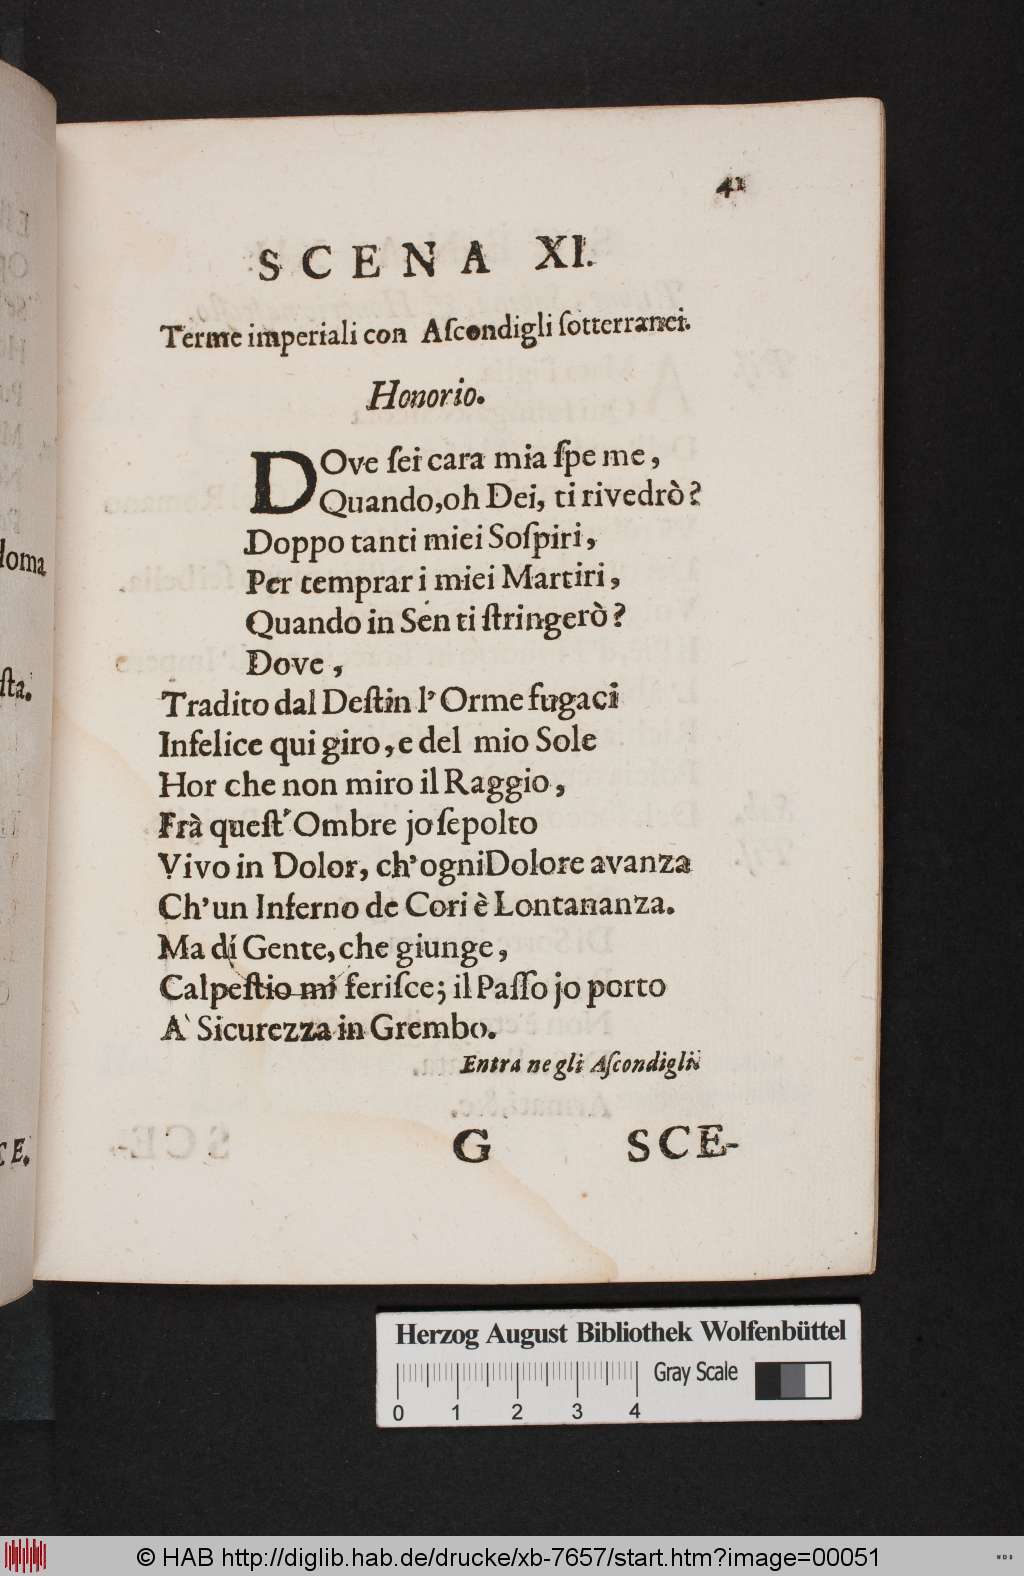 41
SCENA XI.
Terme imperiali con Aſcondigli ſotterranei.
Honorio.
DOve ſei cara mia ſpeme,
Quando, oh Dei, ti rivedrò?
Doppo tanti miei Soſpiri,
Per temprar i miei Martiri,
Quando in Sen ti ſtringerò?
Dove,
Tradito dal Deſtin l'Orme fugaci
Infelice qui giro, e del mio Sole
Hor che non miro il Raggio,
Frà queſt' Ombre jo ſepolto
Vivo in Dolor, ch'ogni Dolore avanza
Ch'un Inferno de Cori è Lontananza.
Ma dí Gente, che giunge,
Calpeſtio mi feriſce; il Paſſo jo porto
A' Sicurezza in Grembo.
Entra negli Aſcondigli
G SCE-
ſta.
CE.
Herzog August Bibliothek Wolfenbüttel
Gray Scale
0 1 2 3 4
© HAB http://diglib.hab.de/drucke/xb-7657/start.htm?image=00051